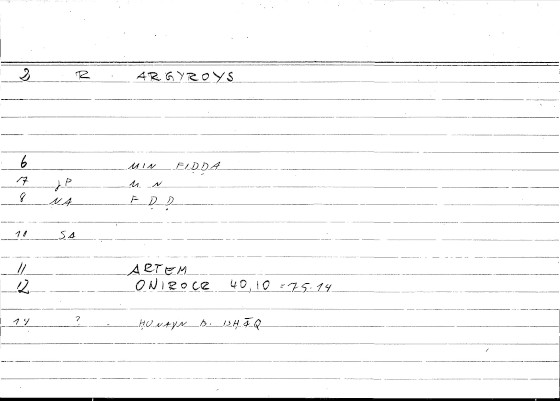 2 R . ARGYROYS
6 MIN FIḌḌA
7 jP M N
8 NA F Ḍ Ḍ
11 SA
11 ARTEM
12 ONIROCR 40,10 = 75.14
14 ? . ḤUNAYN B. ISḤĀQ